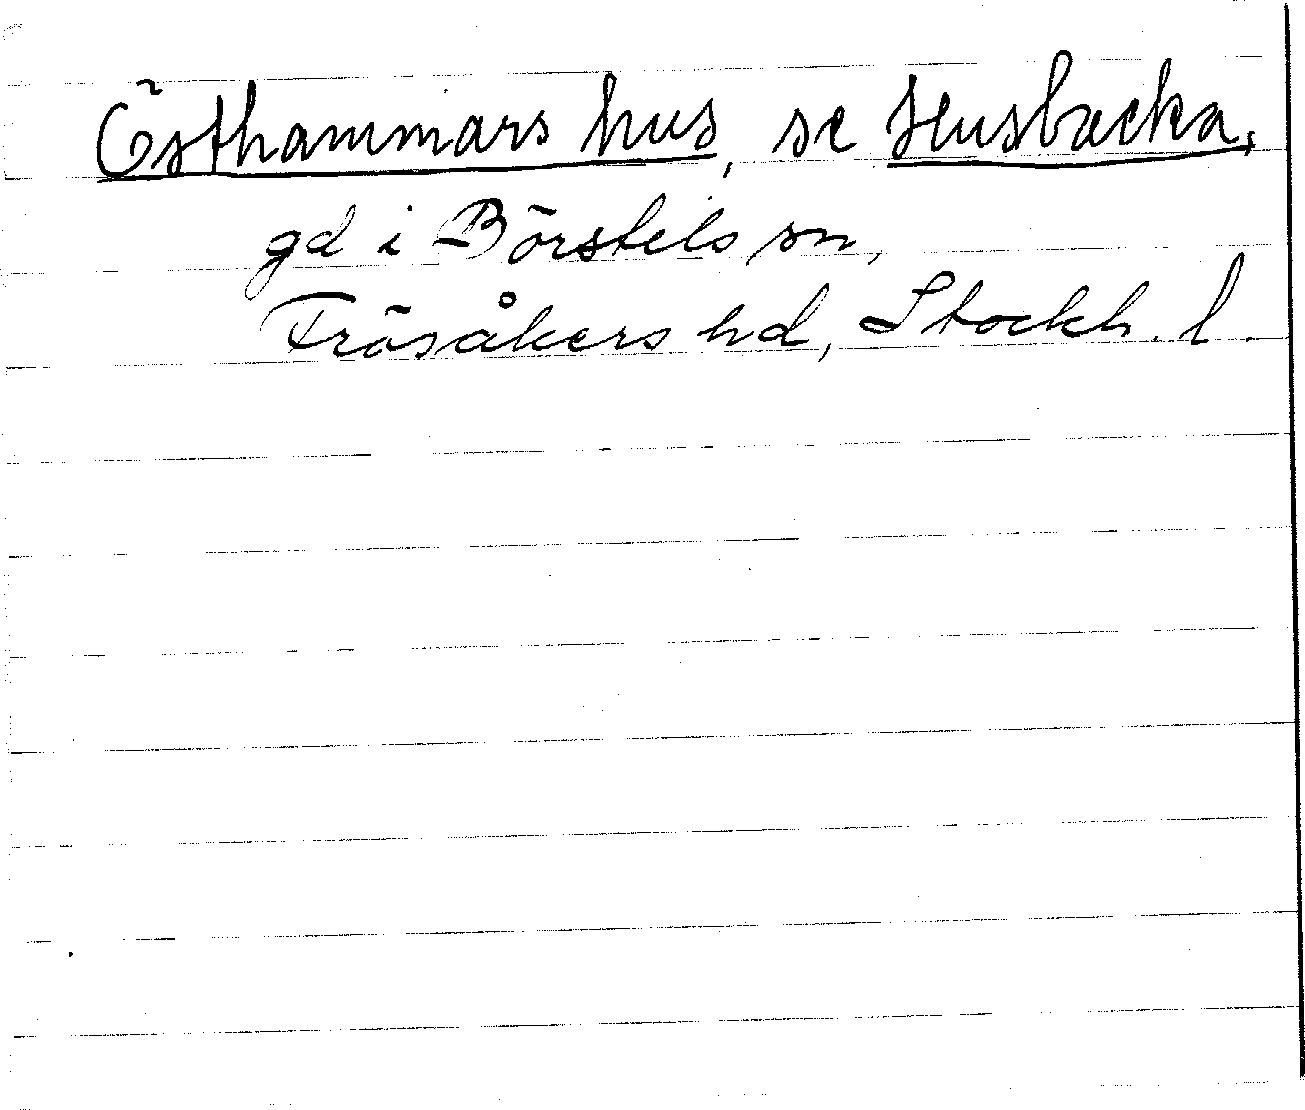 Östhammars hus, se Husbacka,
gd i Börstels sn,
Frösåkers hd, Stockh. l.